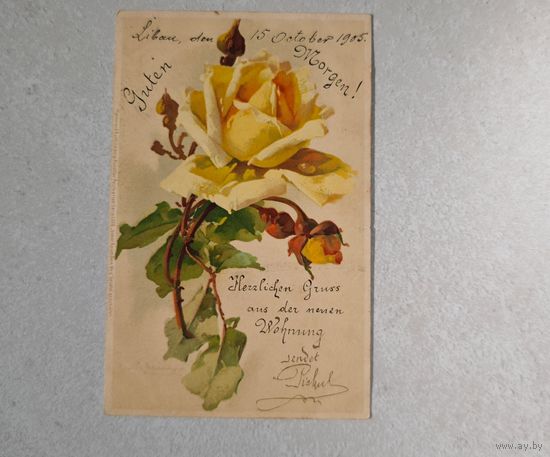 Libau, den 15 October 1905.
Guten Morgen!
Herzlichen Gruss
aus der neuen
Wohnung
sendet
www.ay.by